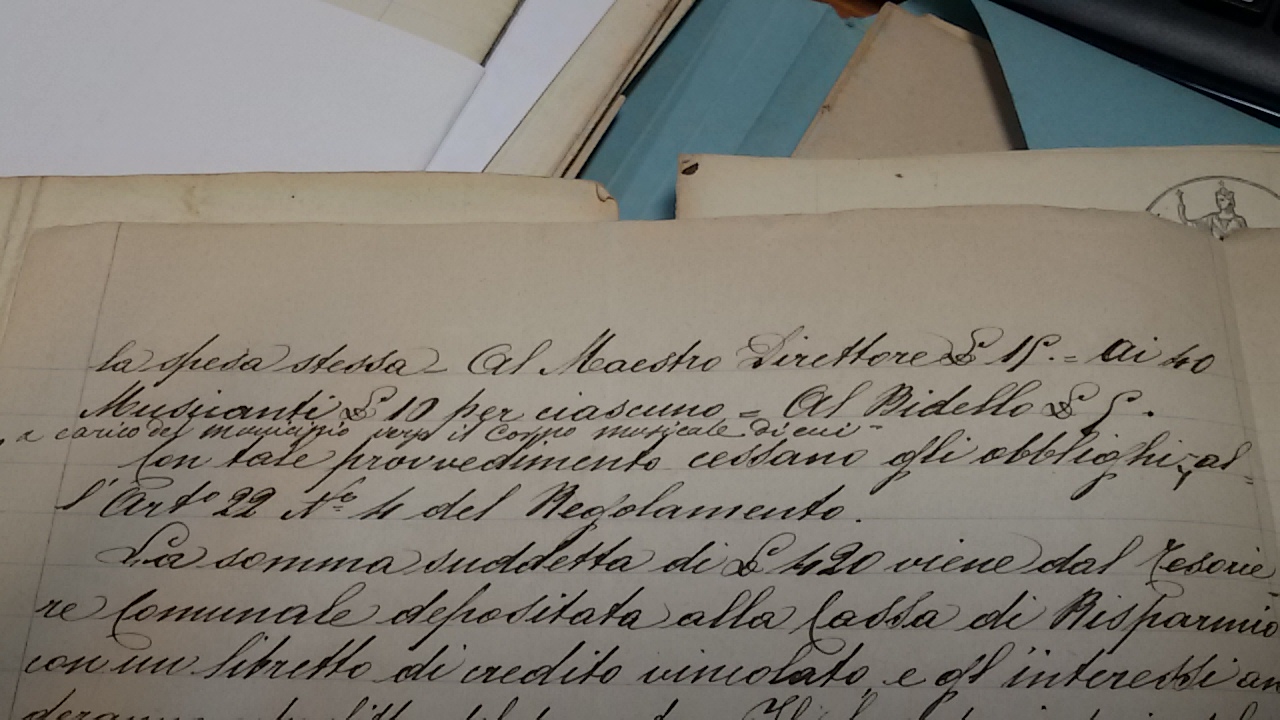 la spesa stessa - Al Maestro Direttore £ 15. = Ai 40
Musicanti £ 10 per ciascuno = Al Bidello £ 5.
a carico del municipio verso il Corpo musicale di cui
Con tale provvedimento cessano gli obblighi, al=
l'Arto 22 No 4 del Regolamento.
La somma suddetta di £ 420 viene dal Tesorie=
re Comunale depositata alla Cassa di Risparmio
con un libretto di credito vincolato, e gl'interessi an
deranno